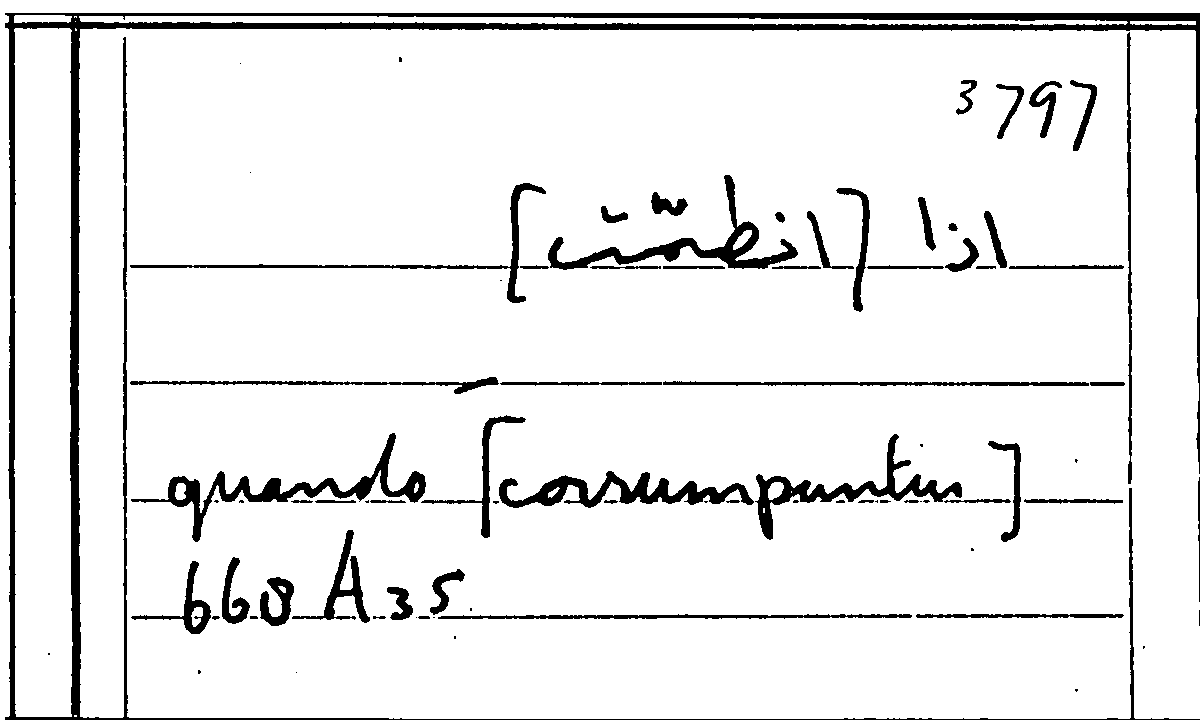 3797
اذا
quando [corrumpuntur]
668 A 35